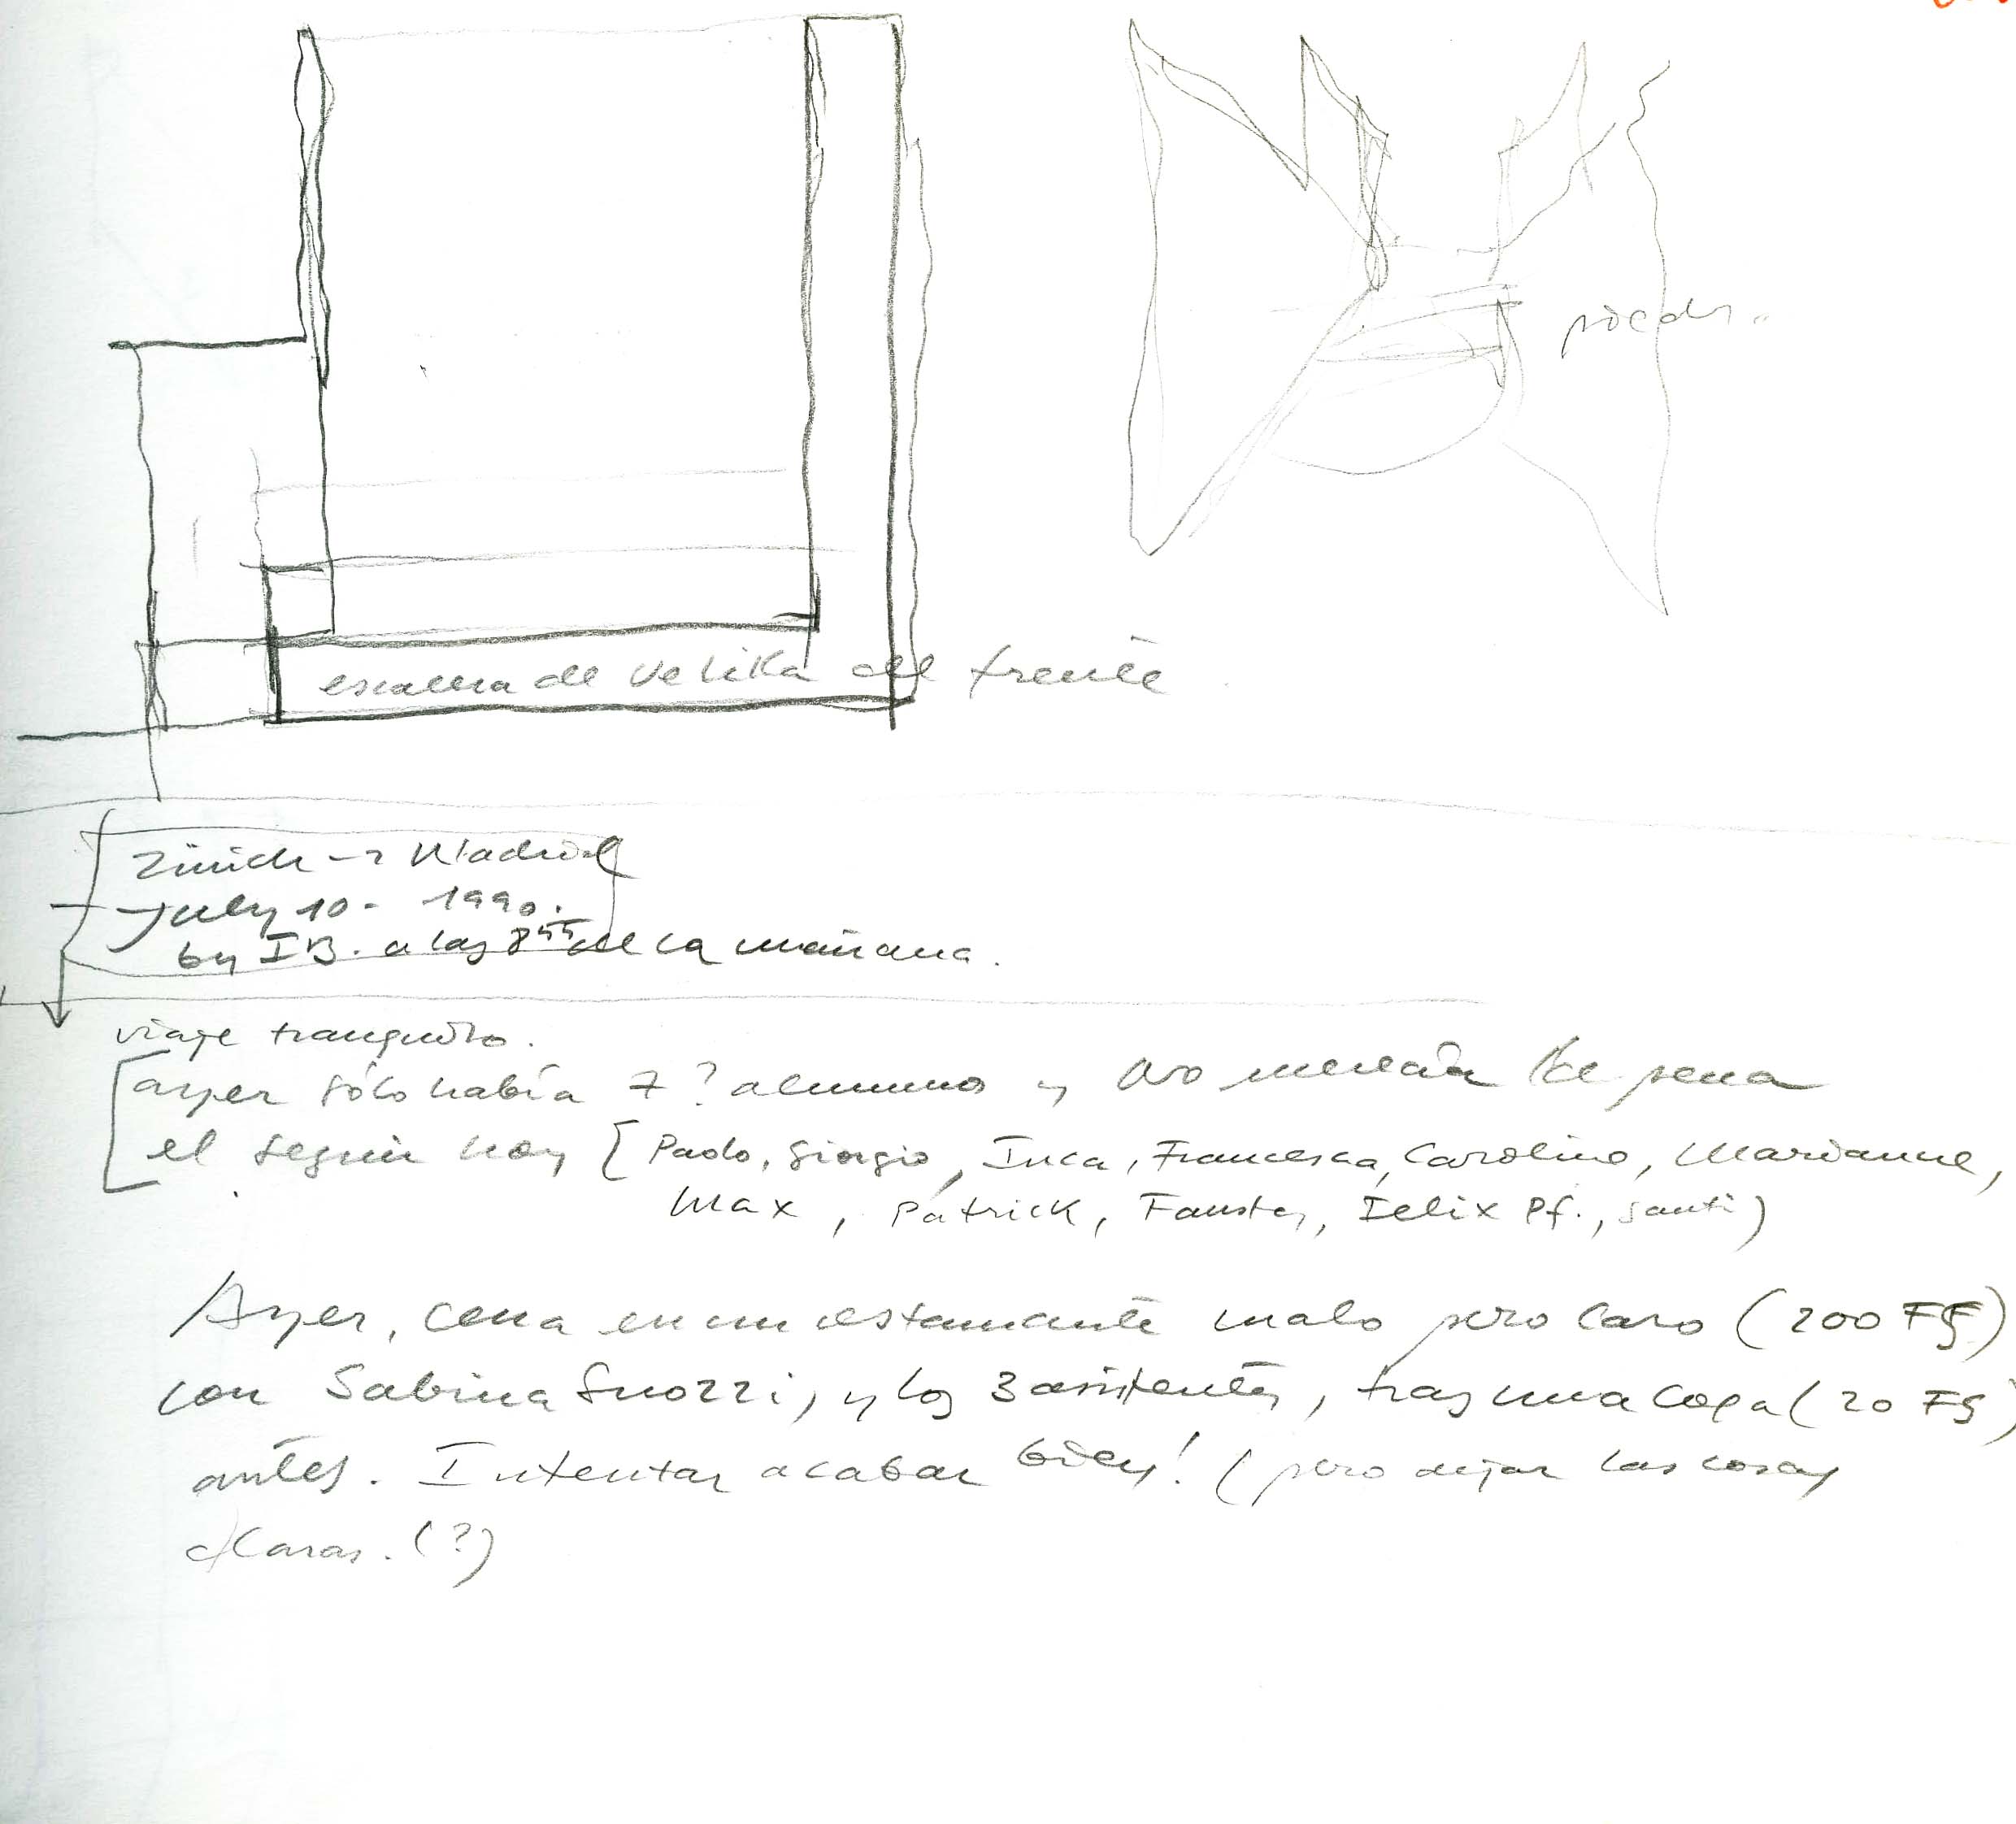 escalera de Velika del frente
Zürich → Madrid
July 10 - 1990.
by IB. a las 8 55 de la mañana.
viaje tranquilo.
ayer sólo había 7? alumnos y no merecía la pena
el seguir hoy [Paolo, Giorgio, Inca, Francesca, Caroline, Marianne,
Max, Patrick, Fausto, Felix Pf., Santi)
Ayer, cena en un restaurante malo pero caro (200 FS)
con Sabina Snozzi, y los 3 asistentes, tras una copa (20 FS)
antes. Intentar acabar bien! (pero dejar las cosas
claras. (?)